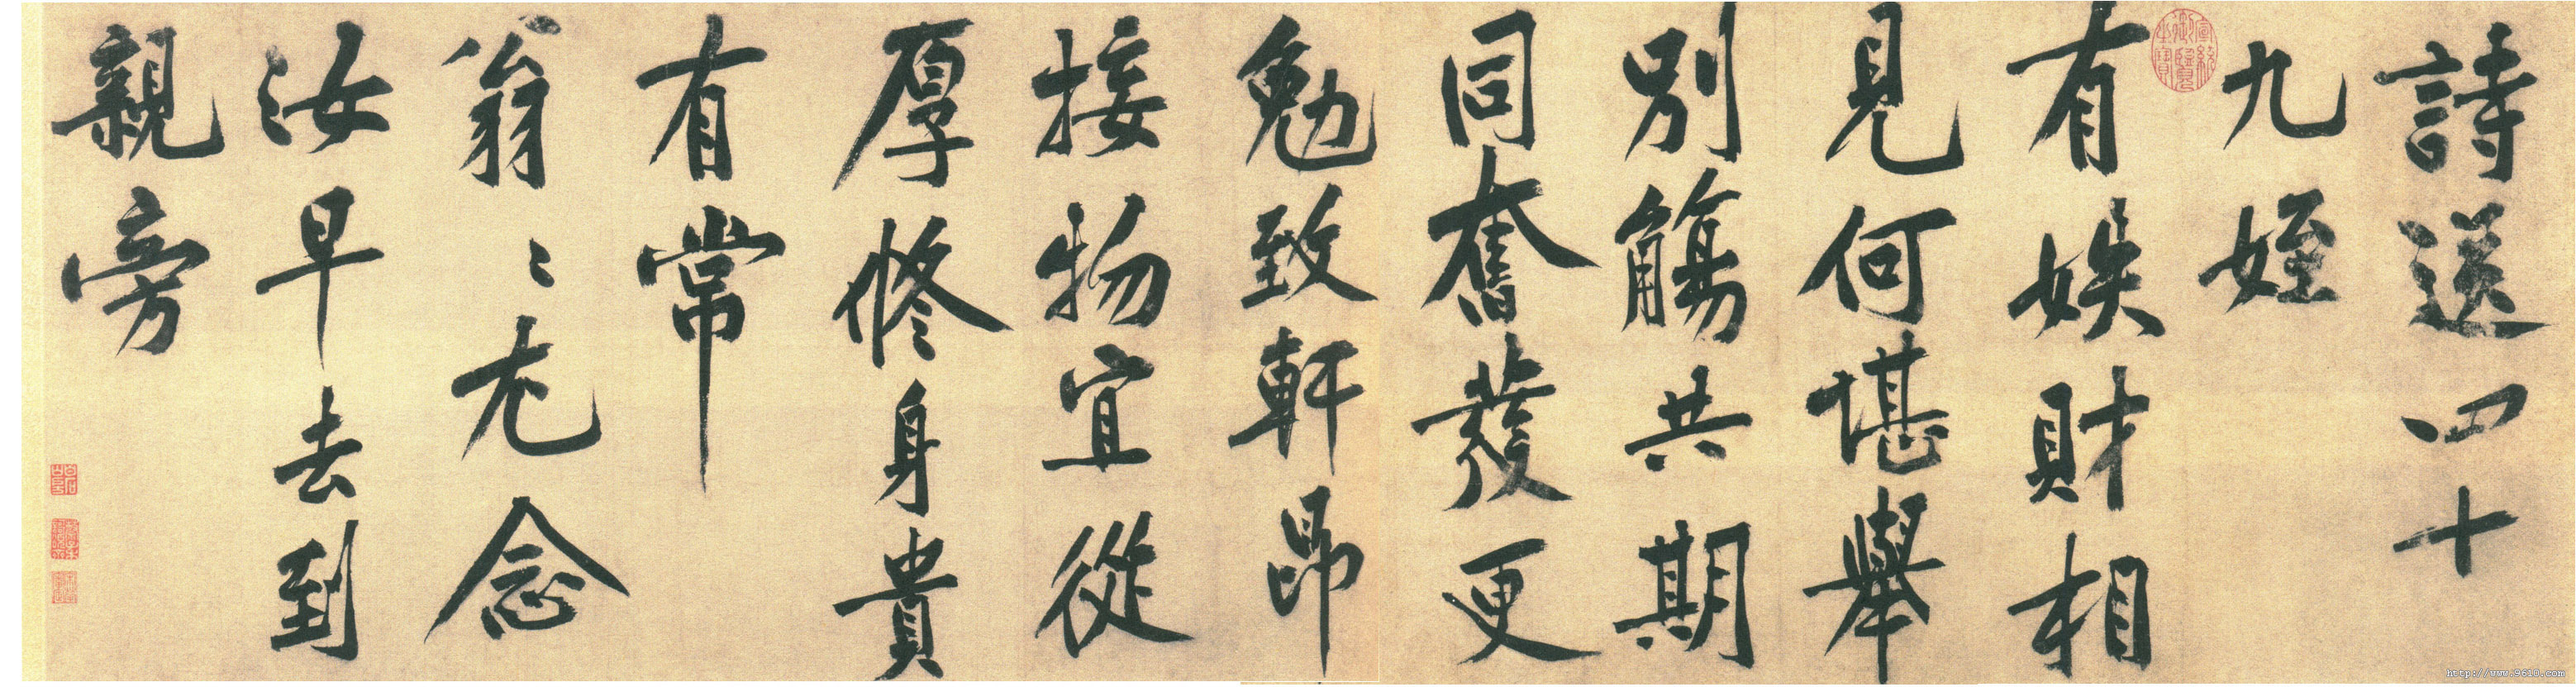 詩送四十
九姪
有娱財相
見何堪舉
別觴共期
同奮發更
勉致軒昂
接物宜從
厚脩身貴
有常
翁〻尤念
汝早去到
親旁
宣統御覽之寶
http://www.9610.com